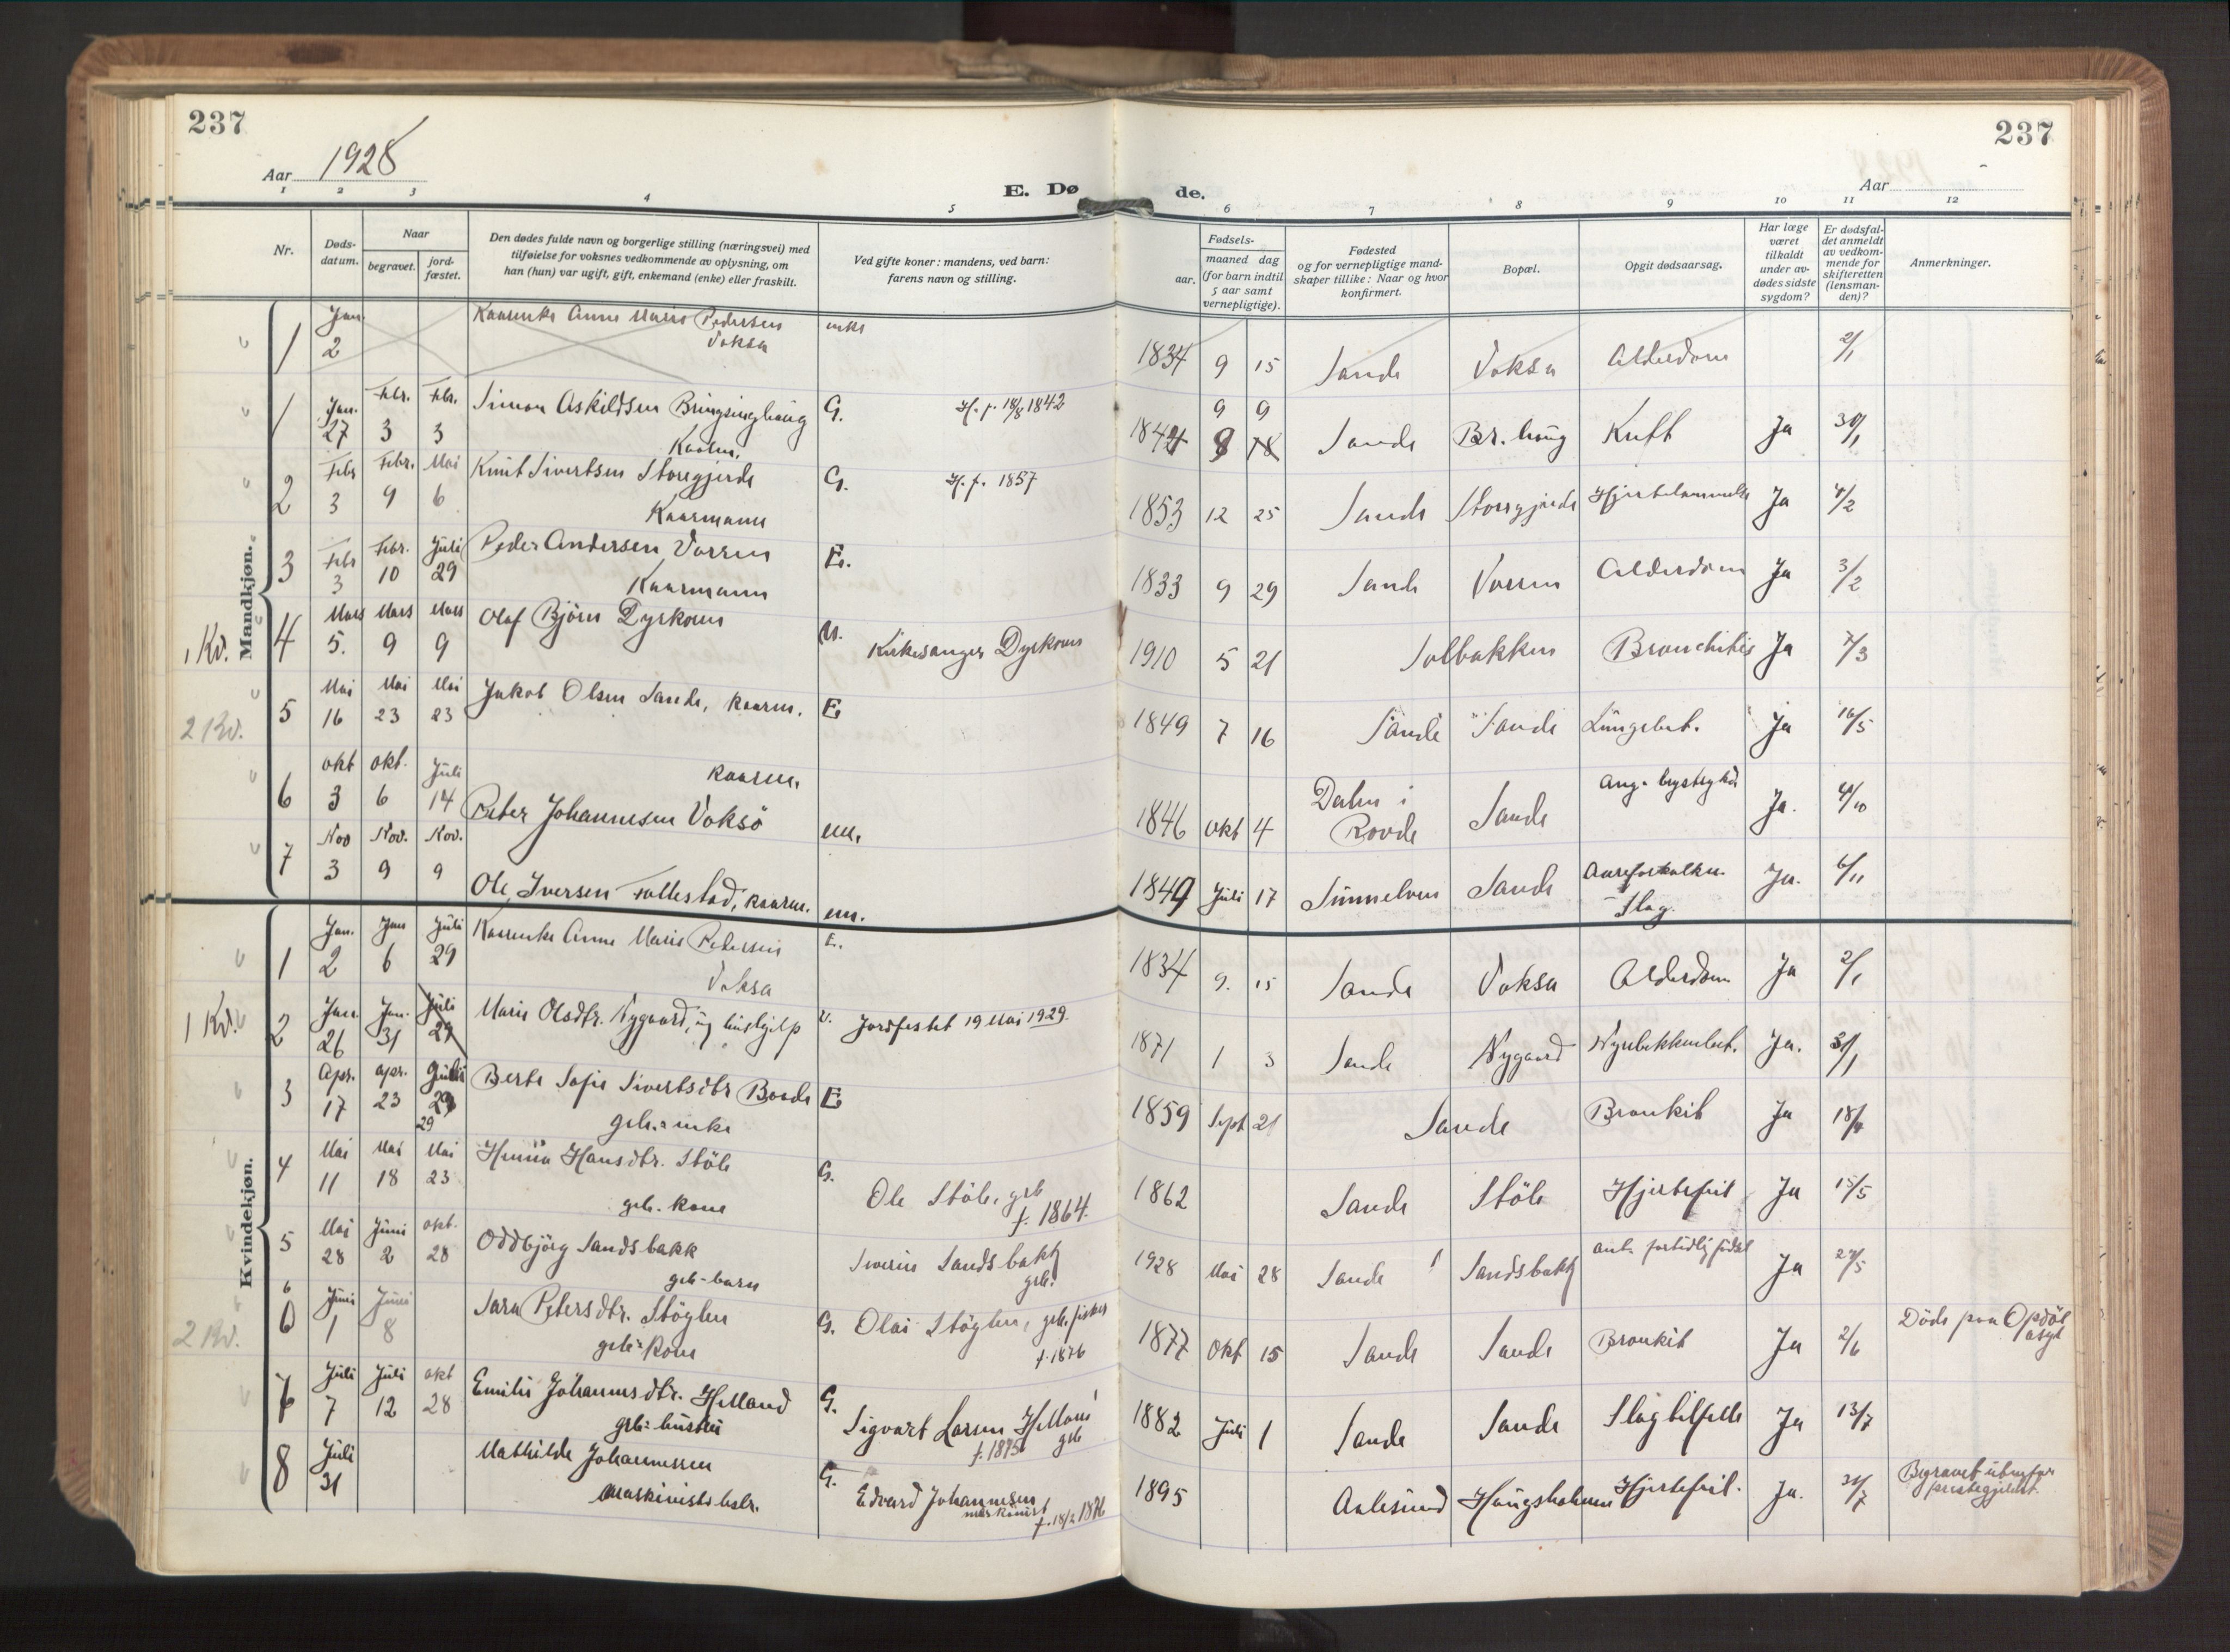 237
237
Aar 1928
E. Dø de.
Aar
1 2 3 4 5 6 7 8 9 10 11 12
Nr.
Døds-
datum.
Naar
begravet.
jord-
fæstet.
Den dødes fulde navn og borgerlige stilling (næringsvei) med
tilføielse for voksnes vedkommende av oplysning, om
han (hun) var ugift, gift, enkemand (enke) eller fraskilt.
Ved gifte koner: mandens, ved barn:
farens navn og stilling.
Fødsels-
aar.
maaned dag
(for barn indtil
5 aar samt
vernepligtige).
Fødested
og for vernepligtige mand-
skaper tillike: Naar og hvor
konfirmert.
Bopæl.
Opgit dødsaarsag.
Har læge
været
tilkaldt
under av-
dødes sidste
sygdom?
Er dødsfal-
det anmeldt
av vedkom-
mende for
skifteretten
(lensman-
den)?
Anmerkninger.
Mandkjøn.
1 Jan. 2 Kaarenke Anne Marie Pedersen enke 1834 9 15 Sande Voksa Alderdom 2/1
Voksa
1 Jan. 27 Febr. 3 Febr. 3 Simon Askildsen Bringsinghaug G. H. f. 18/8 1842 1844 9 9 8 18 Sande Br. haug Kreft Ja 30/1
Kaarm.
2 Febr 3 Febr. 9 Mai 6 Knut Sivertsen Storegjerde G. H. f. 1857 1853 12 25 Sande Storegjerde Hjertelammelse Ja 4/2
Kaarmann
3 Febr 3 Febr. 10 Juli 29 Peder Andersen Vorren E. 1833 9 29 Sande Vorren Alderdom Ja 3/2
Kaarmann
1 Kv. 4 Mars 5. Mars 9 Mars 9 Olaf Björn Dyrkorn U. Kirkesanger Dyrkorn 1910 5 21 Solbakken Bronchitis Ja 7/3
2 Kv. 5 Mai 16 Mai 23 Mai 23 Jakob Olsen Sande, kaarm. E 1849 7 16 Sande Sande Lungebet. Ja 16/5
6 Okt 3 Okt. 6 Juli 14 kaarm.
Peter Johannesen Voksö em. 1846 Okt 4 Dalen i Rovde Sande Ang. brystsyke Ja. 4/10
7 Nov 3 Nov. 9 Nov. 9 Ole Iversen Follestad, kaarm. em. 1849 Juli 17 Sunnelven Sande Aareforkalkn. Ja. 6/11
Slag.
Kvindekjøn.
1 Jan. 2 Jan 6 Juli 29 Kaarenke Anne Marie Pedersen E. 1834 9. 15 Sande Voksa Alderdom Ja 2/1
Voksa
1 Kv. 2 Jan. 26 Jan. 31 Juli 29 Marie Olsdtr. Nygaard, ug hushjelp U. Jordfestet 19 Mai 1929. 1871 1 3 Sande Nygaard Nyrebekkenbet. Ja. 31/1
3 Apr. 17 Apr. 23 Juli 29 29 Berte Sofie Sivertsdtr Boode E 1859 Sept 21 Sande Bronkit Ja 18/4
grb.enke
4 Mai 11 Mai 18 Mai 23 Hansdtr. Stöle G. Ole Stöle, grb 1862 Sande Stöle Hjertefeil Ja 15/5
grb. kone f. 1864.
5 Mai 28 Juni 2 okt. 28 Oddbjörg Sandsbakk Siverin Sandsbakk 1928 Mai 28 Sande Sandsbakk ant. fortidlig födsel Ja 29/5
grb-barn grb.
2 Kv. 6 Juni 1 Juni 8 Sara Petersdtr. Stöylen G. Olai Stöylen, grb. fisker 1877 Okt 15 Sande Sande Bronkit Ja 2/6 Döde paa Opdöl asyl
grb-kone f. 1876
7 Juli 7 Juli 12 okt 28 Emilie Johannesdtr. Helland G. Sigvart Larsen Helland 1882 Juli 1 Sande Sande Slagtilfelle Ja 13/7
grb. hustru f. 1875 grb
8 Juli 31 Mathilde Johannessen G. Edvard Johannesen 1895 Aalesund Haugsholmen Hjertefeil. Ja. 31/7 Begravet utenfor
maskinists hstr. maskinist f. 18/2 1876 prestegjeldet.